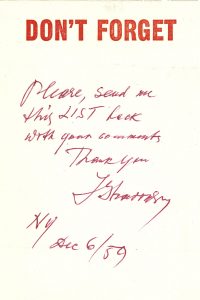 DON'T FORGET
Please, send me
this LIST back
with your comments
Thank you
IStravinsky
NY
Dec 6/59